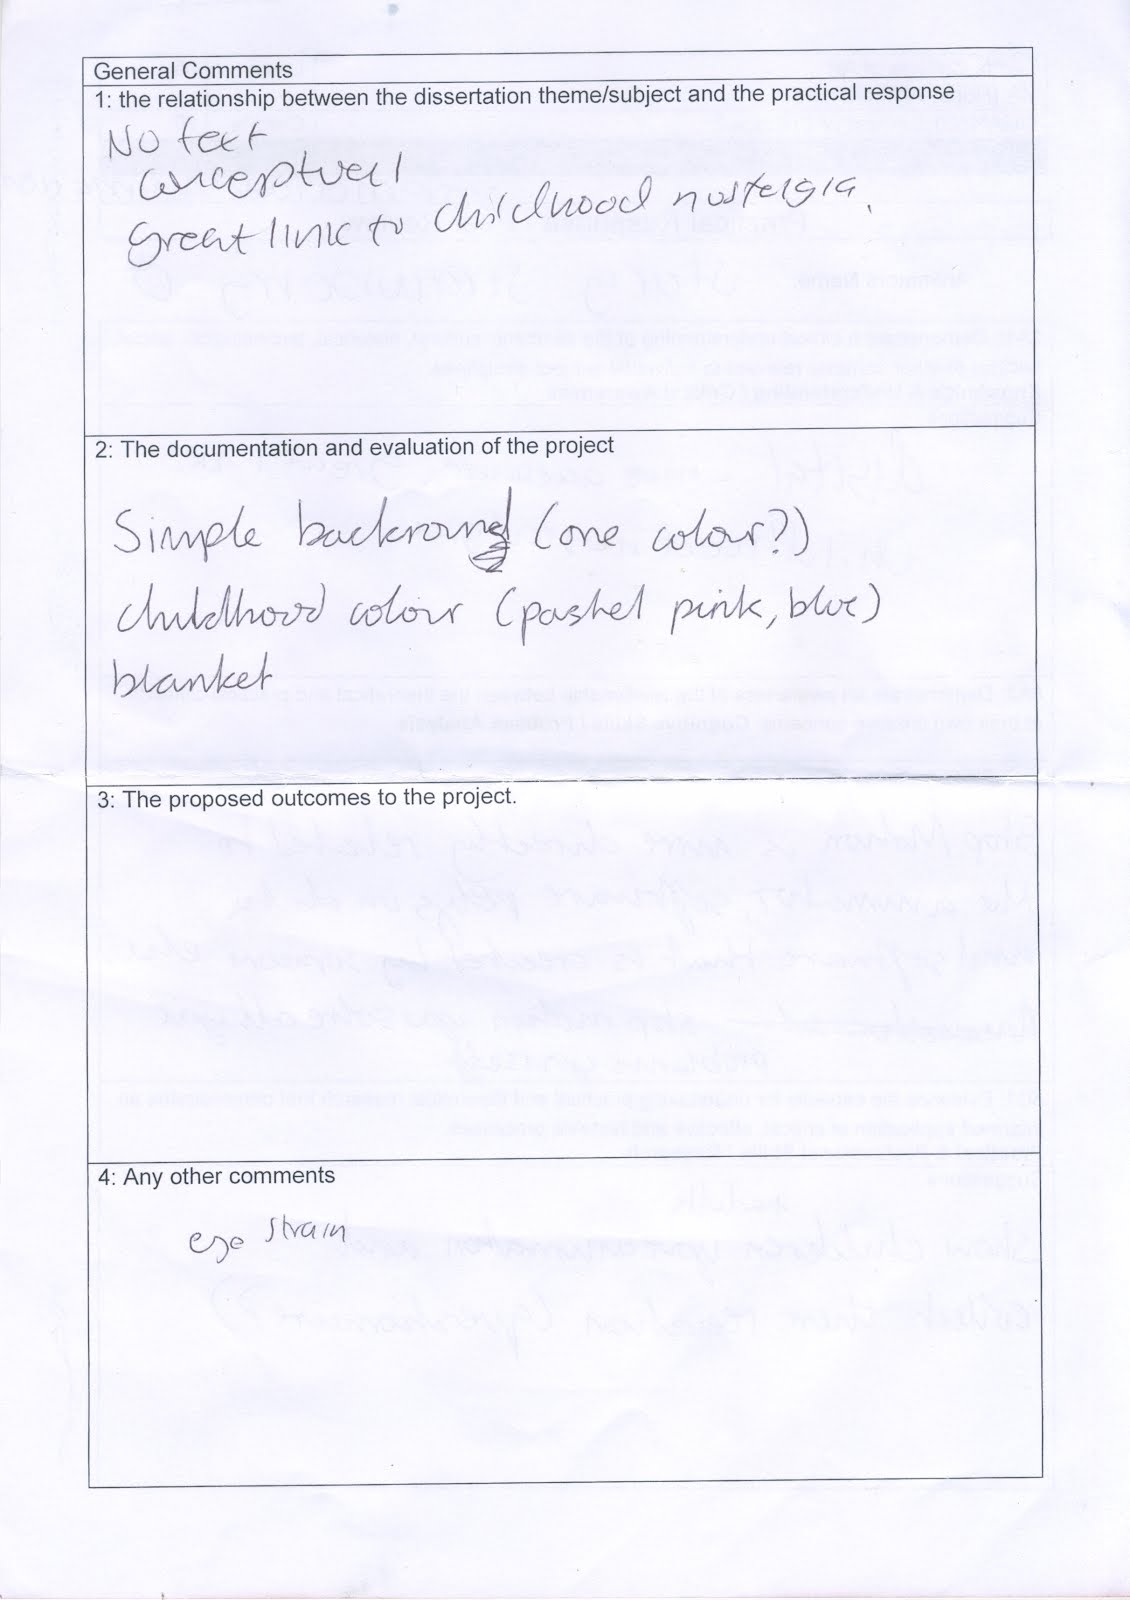 General Comments
1: the relationship between the dissertation theme/subject and the practical response
No text
conceptual
Great link to childhood nostelgia.
2: The documentation and evaluation of the project
Simple backround (one colour?)
childhood colour (pastel pink, blue)
blanket
3: The proposed outcomes to the project.
4: Any other comments
eye strain